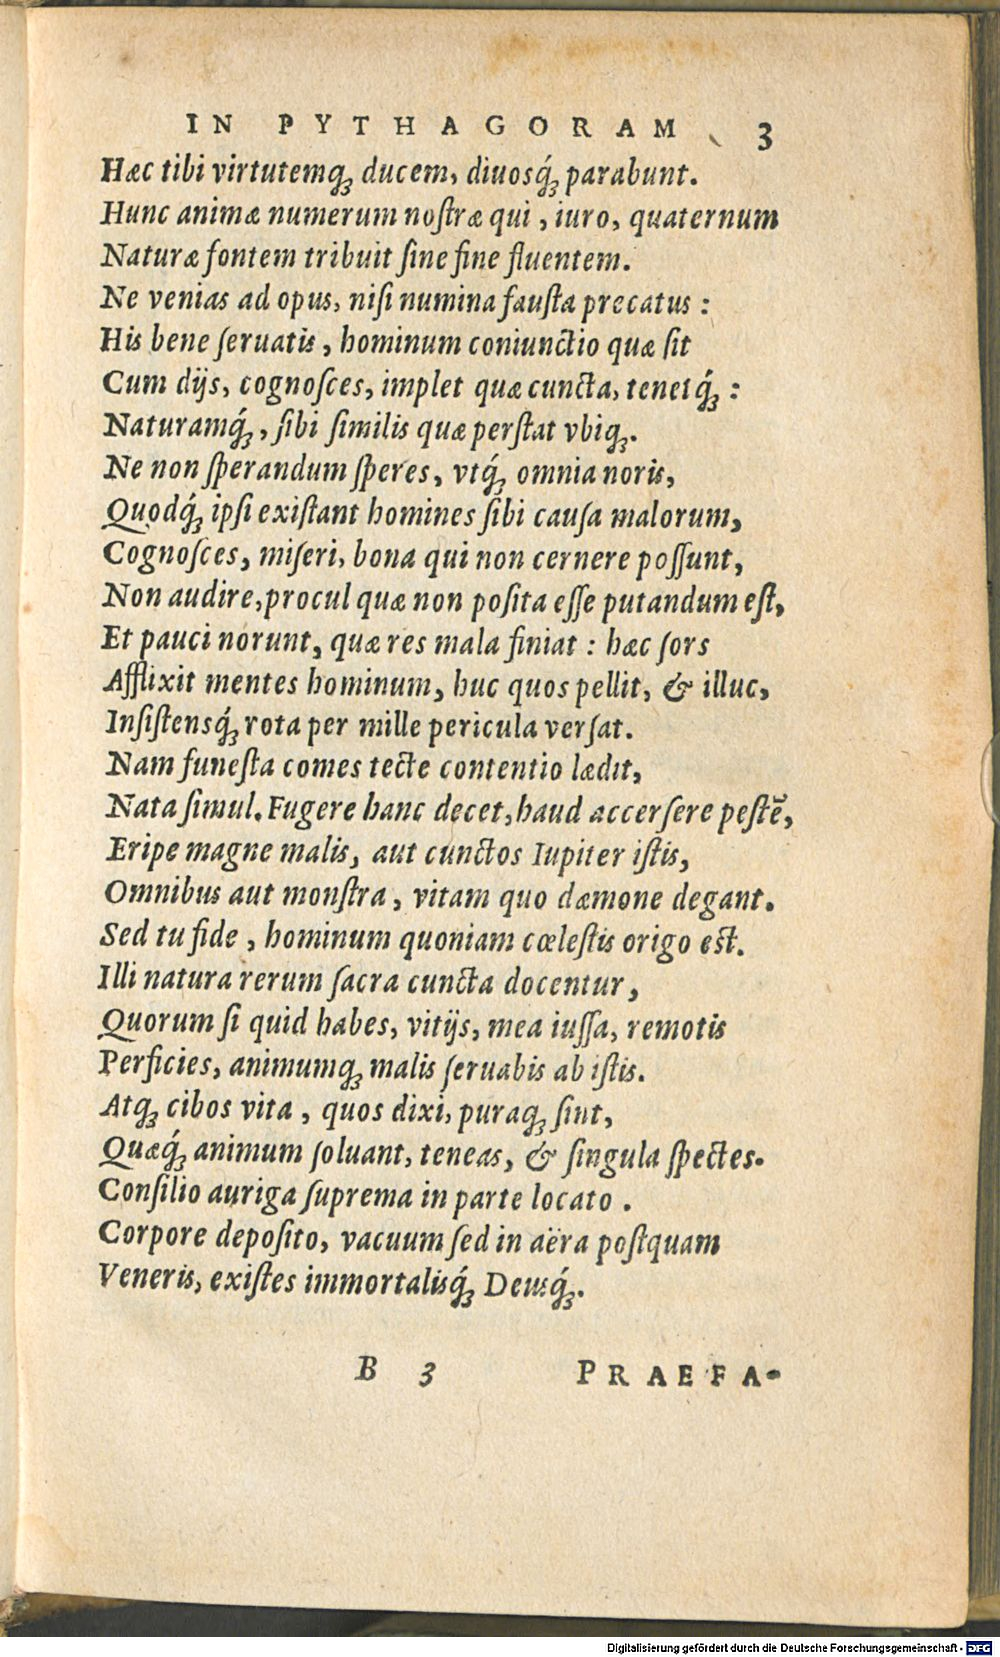 IN PYTHAGORAM 3
Hæc tibi virtutemq́ꝫ ducem, diuosq́ꝫ parabunt.
Hunc animæ numerum nostræ qui, iuro, quaternum
Naturæ fontem tribuit sine fine fluentem.
Ne venias ad opus, nisi numina fausta precatus:
His bene seruatis, hominum coniunctio quæ sit
Cum dijs, cognosces, implet quæ cuncta, tenetq́ꝫ:
Naturamq́ꝫ, sibi similis quæ perstat vbiqꝫ.
Ne non sperandum speres, vtq́ꝫ omnia noris,
Quodq́ꝫ ipsi existant homines sibi causa malorum,
Cognosces, miseri, bona qui non cernere possunt,
Non audire, procul quæ non posita esse putandum est,
Et pauci norunt, quæ res mala finiat: hæc sors
Afflixit mentes hominum, huc quos pellit, & illuc,
Insistensq́ꝫ rota per mille pericula versat.
Nam funesta comes tecte contentio lædit,
Nata simul. Fugere hanc decet, haud accersere pestē,
Eripe magne malis, aut cunctos Iupiter istis,
Omnibus aut monstra, vitam quo dæmone degant.
Sed tu fide, hominum quoniam cœlestis origo est.
Illi natura rerum sacra cuncta docentur,
Quorum si quid habes, vitijs, mea iussa, remotis
Perficies, animumqꝫ malis seruabis ab istis.
Atqꝫ cibos vita, quos dixi, puraqꝫ sint,
Quæq́ꝫ animum soluant, teneas, & singula spectes.
Consilio auriga suprema in parte locato.
Corpore deposito, vacuum sed in aëra postquam
Veneris, existes immortalisq́ꝫ Deusq́ꝫ.
B 3 PRAEFA-
Digitalisierung gefördert durch die Deutsche Forschungsgemeinschaft - DFG